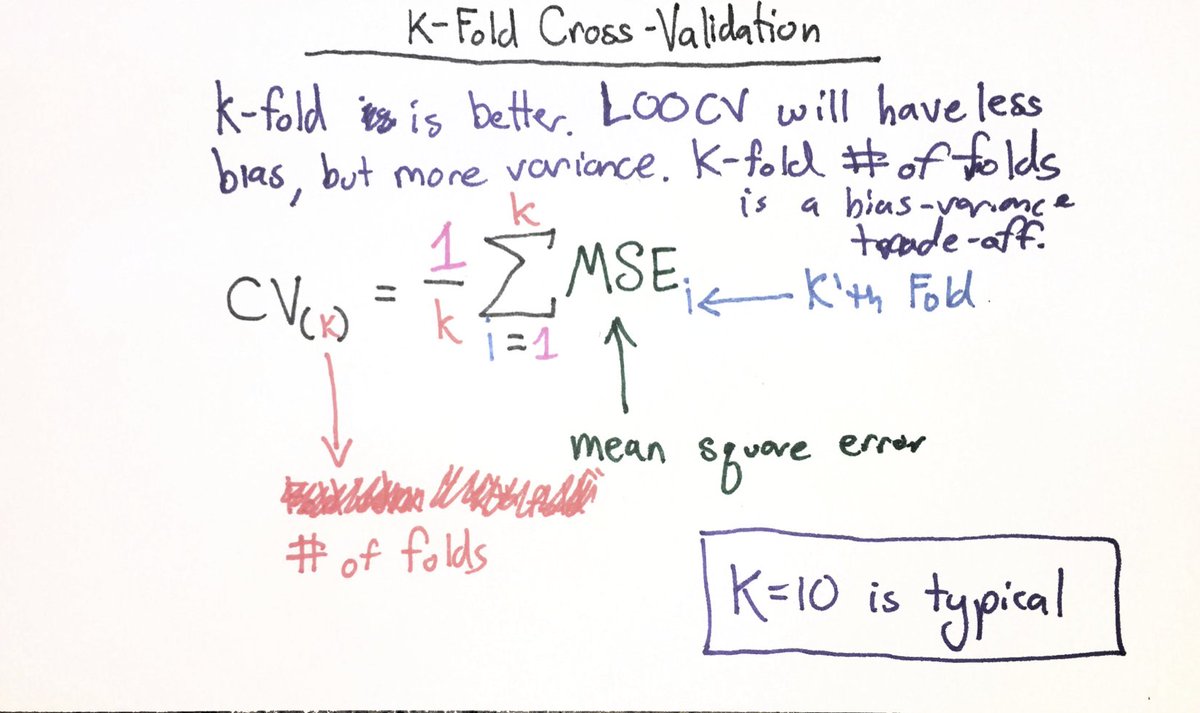 K-Fold Cross-Validation
K-fold is better. LOOCV will have less
bias, but more variance. K-fold # of folds
is a bias-variance
trade-off.
CV(K) = 1/k k∑i=1 MSEi ← K'th Fold
mean square error
# of folds
K=10 is typical